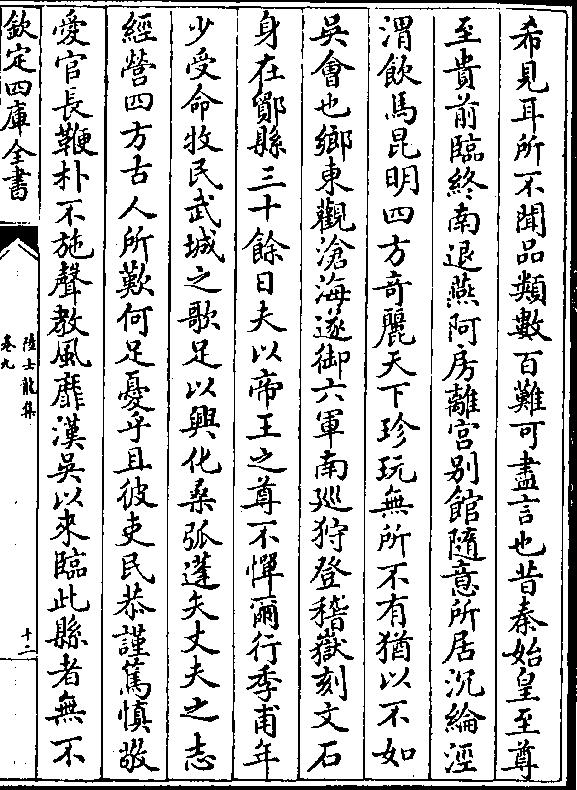 希見耳所不聞品類數百難可盡言也昔秦始皇至尊
至貴前臨終南退燕阿房離宮别館隨意所居沉綸涇
渭飲馬昆明四方奇麗天下珍玩無所不有猶以不如
吳會也鄉東觀滄海遂御六軍南巡狩登稽嶽刻文石
身在鄮縣三十餘日夫以帝王之尊不憚爾行季甫年
少受命牧民武城之歌足以興化桑弧蓬矢丈夫之志
經營四方古人所歎何足憂乎且彼吏民恭謹篤慎敬
愛官長鞭朴不施聲教風靡漢吳以來臨此縣者無不
欽定四庫全書
陸士龍集
卷九
十二